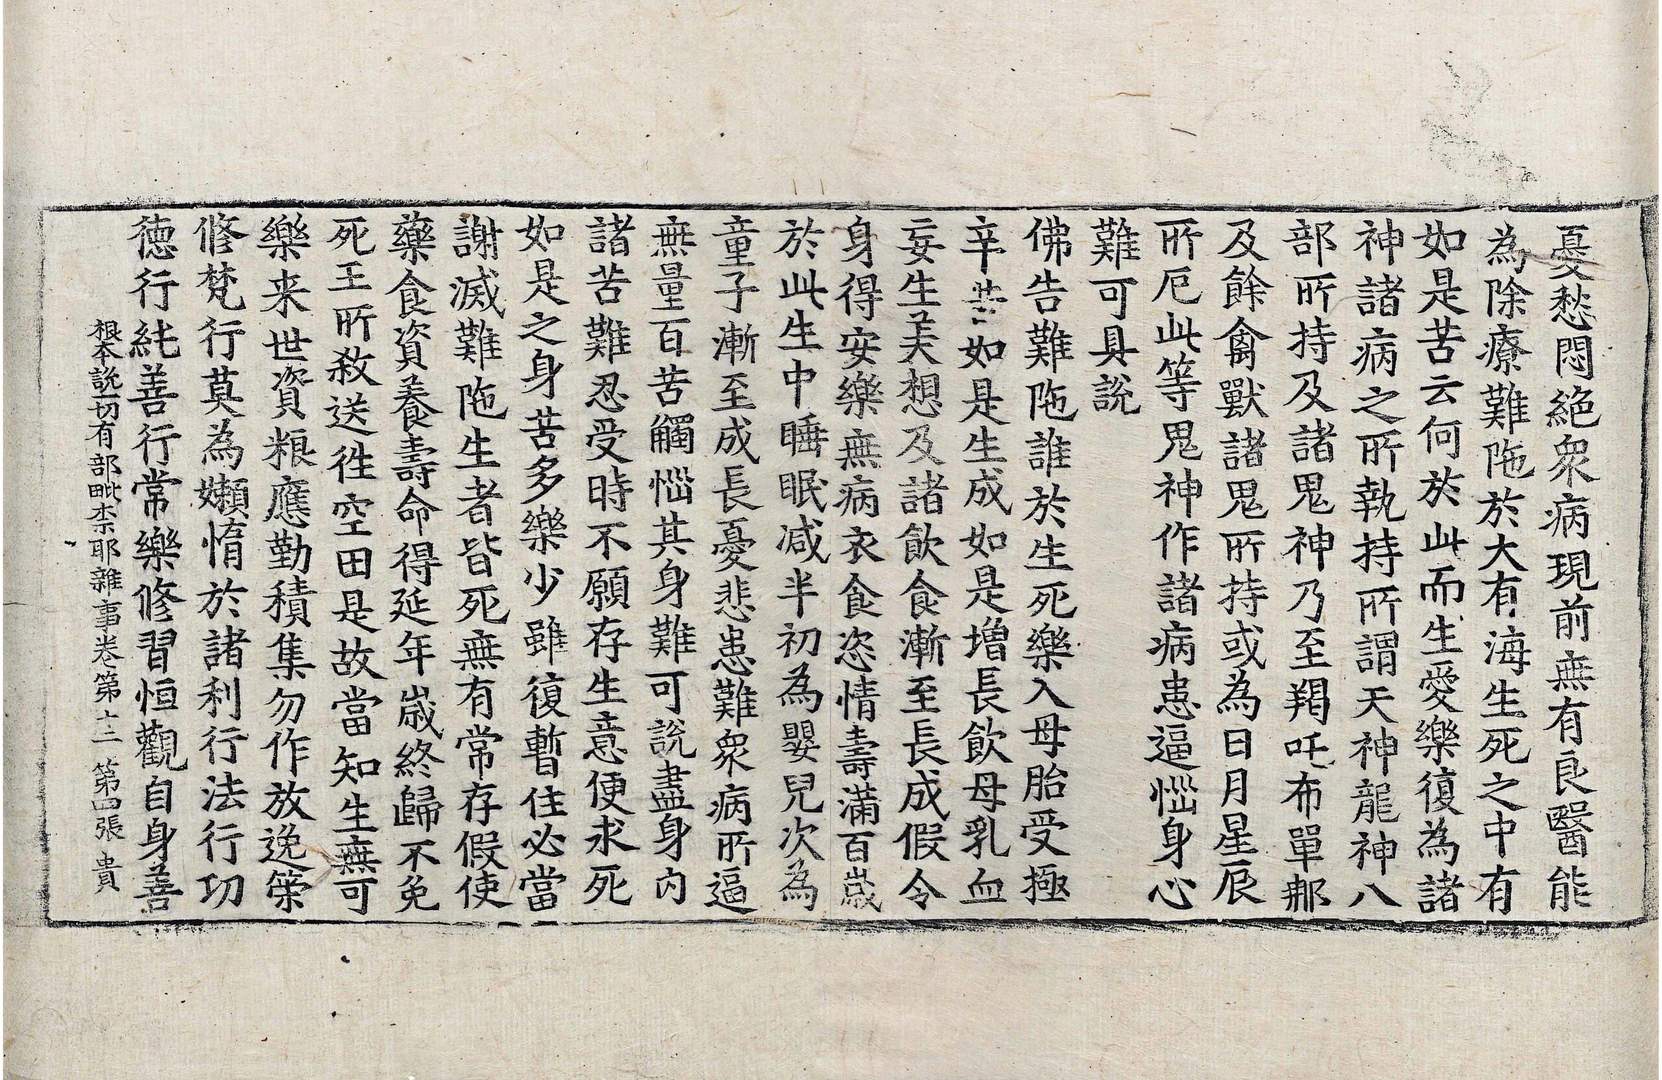 憂愁悶絶衆病現前無有良醫能
為除療難陁於大有海生死之中有
如是苦云何於此而生愛樂復為諸
神諸病之所執持所謂天神龍神八
部所持及諸鬼神乃至羯吒布單那
及餘禽獸諸鬼所持或為日月星辰
所厄此等鬼神作諸病患逼惱身心
難可具說
佛告難陁誰於生死樂入母胎受極
辛苦如是生成如是增長飲母乳血
妄生美想及諸飲食漸至長成假令
身得安樂無病衣食恣情壽滿百歲
於此生中睡眠減半初為嬰兒次為
童子漸至成長憂悲患難衆病所逼
無量百苦觸惱其身難可說盡身內
諸苦難忍受時不願存生意便求死
如是之身苦多樂少雖復暫住必當
謝滅難陁生者皆死無有常存假使
藥食資養壽命得延年歲終歸不免
死王所敎送徃空田是故當知生無可
樂来世資粮應勤積集勿作放逸策
修梵行莫為嬾惰於諸利行法行功
德行純善行常樂修習恒觀自身善
根本說一切有部毗柰耶雜事卷第十二 第四張 貴